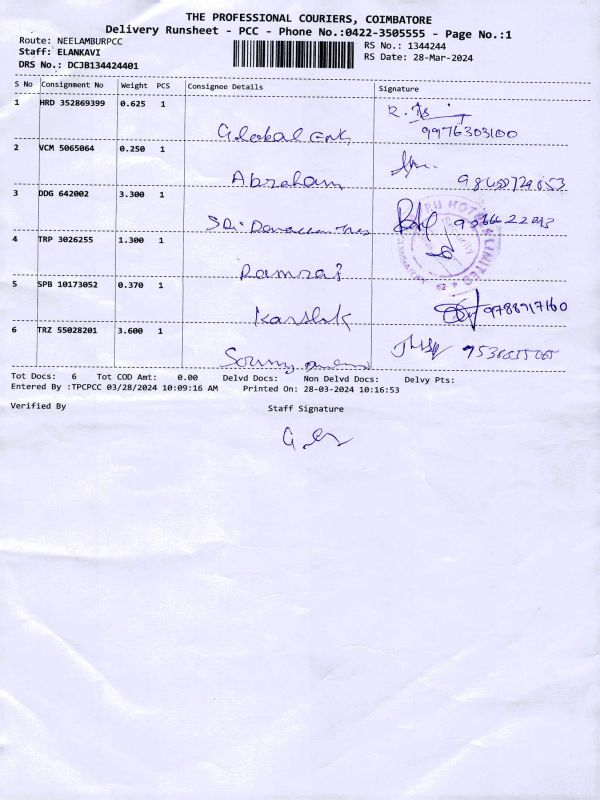 THE PROFESSIONAL COURIERS, COIMBATORE
Delivery Runsheet - PCC - Phone No.:0422-3505555 - Page No.:1
Route: NEELAMBURPCC
Staff: ELANKAVI
DRS No.: DCJB134424401
RS No.: 1344244
RS Date: 28-Mar-2024
S No Consignment No Weight PCS Consignee Details Signature
1 HRD 352869399 0.625 1
Global 9976303100
2 VCM 5065064 0.250 1
Abraham
3 DDG 642002 3.300 1
Sai
4 TRP 3026255 1.300 1
Ramraj
5 SPB 10173052 0.370 1
Karthik 9788717160
6 TRZ 55028201 3.600 1
Tot Docs: 6 Tot COD Amt: 0.00 Delvd Docs: Non Delvd Docs: Delvy Pts:
Entered By :TPCPCC 03/28/2024 10:09:16 AM Printed On: 28-03-2024 10:16:53
Verified By Staff Signature